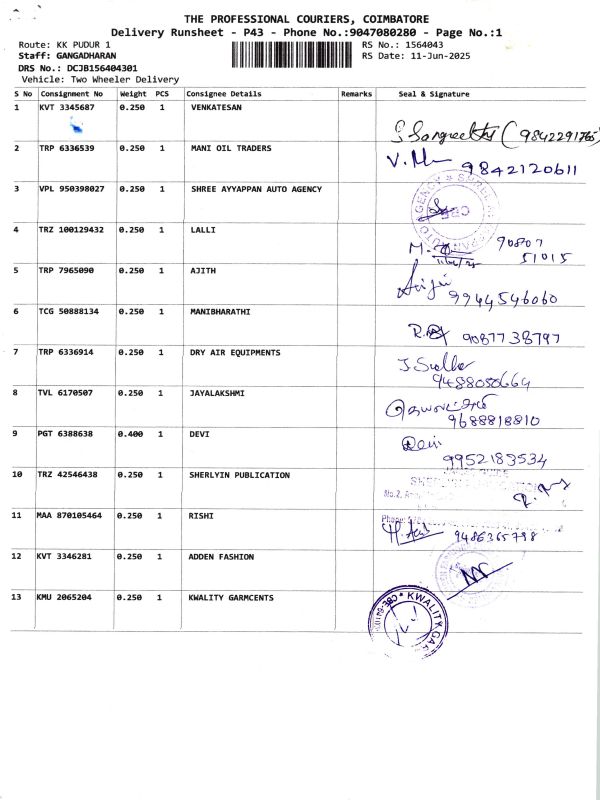 THE PROFESSIONAL COURIERS, COIMBATORE
Delivery Runsheet - P43 - Phone No.:9047080280 - Page No.:1
Route: KK PUDUR 1 RS No.: 1564043
Staff: GANGADHARAN RS Date: 11-Jun-2025
DRS No.: DCJB156404301
Vehicle: Two Wheeler Delivery
S No Consignment No Weight PCS Consignee Details Remarks Seal & Signature
1 KVT 3345687 0.250 1 VENKATESAN
(9842291765)
2 TRP 6336539 0.250 1 MANI OIL TRADERS
9842120611
3 VPL 950398027 0.250 1 SHREE AYYAPPAN AUTO AGENCY
CBE
4 TRZ 100129432 0.250 1 LALLI
90807
51015
5 TRP 7965090 0.250 1 AJITH
9944546060
6 TCG 50888134 0.250 1 MANIBHARATHI
9087738797
7 TRP 6336914 0.250 1 DRY AIR EQUIPMENTS
9488050664
8 TVL 6170507 0.250 1 JAYALAKSHMI
9688818810
9 PGT 6388638 0.400 1 DEVI
Devi
9952183534
10 TRZ 42546438 0.250 1 SHERLYIN PUBLICATION
No.2,
11 MAA 870105464 0.250 1 RISHI
Phone
9486365798
12 KVT 3346281 0.250 1 ADDEN FASHION
13 KMU 2065204 0.250 1 KWALITY GARMCENTS
KWALITY GAR